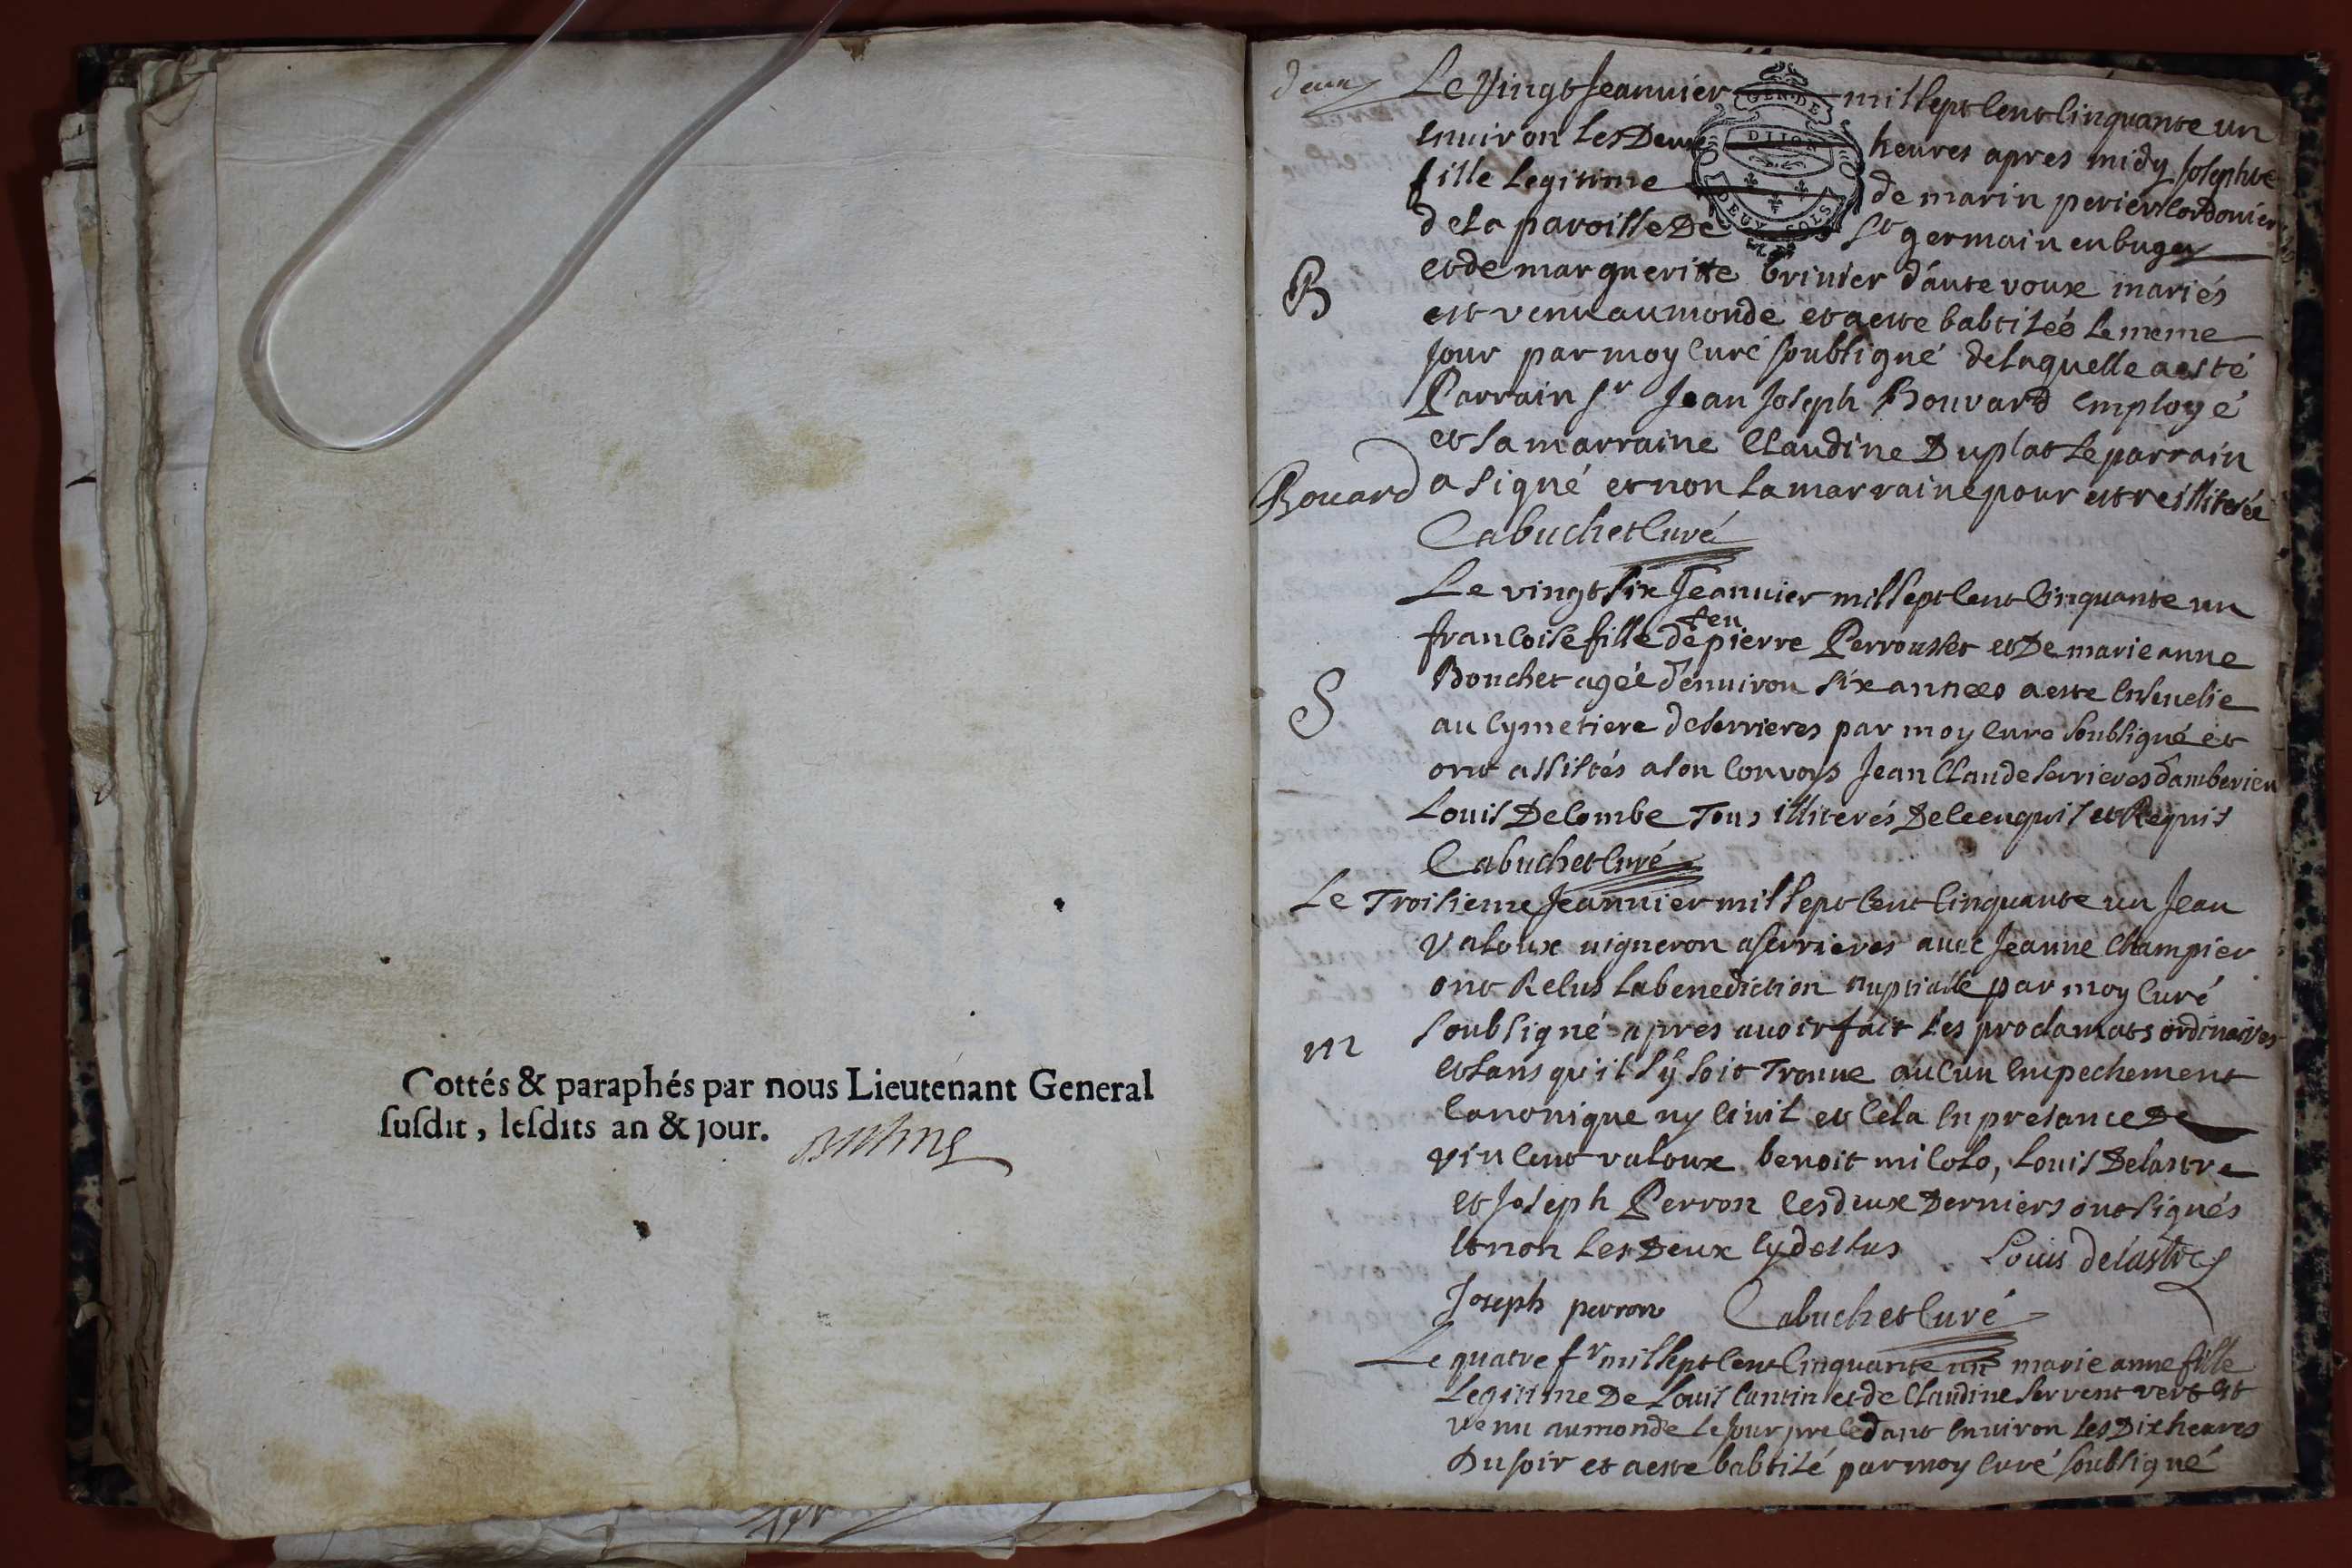 Cottés & paraphés par nous Lieutenant General
susdit, lesdits an & jour.
deux
Le Vingt Jeanvier mil sept cent cinquante un
environ les Deux heures apres midy Josephte
fille legitime de marin perier cordonier
de la paroisse De St germain en bugey
et de margueritte brinier d'ante voux mariés
B
est venu au monde et a este babtisée le meme
jour par moy curé soubsigné de laquelle a esté
Parrain Sr Jean Joseph Bouvard employé
et la marraine Claudine Duplat le parrain
Bouard a signé et non la marraine pour estre illiterée
Cabuchet Curé
Le vingt six Jeanvier mil sept cent cinquante un
francoise fille de feu pierre Perrousset et De marie anne
Bouchet agée d'environ six annees a este ensevelie
S
au cymetiere de serrieres par moy curé soubsigné et
ont assistés a son convoys Jean Claude serrieres d'amberieu
Louis Delombe Tous illiterés De ce enquis et Requis
Cabuchet Curé
Le Troisieme Jeanvier mil sept cent cinquante un Jean
valoux vigneron a serrieres avec Jeanne Champier
ont Resus la benediction nuptialle par moy curé
m
soubsigné aprés avoir fait les proclamats ordinaires
et sans qu'il s'y soit Trouve aucun empechement
canonique ny civil et cela en presance De
vincent valoux benoit milolo, Louis Delastre
et Joseph Perron les deux Derniers ont signés
et non les Deux cy dessus Louis delastre
Joseph perron Cabuchet Curé
Le quatre fr mil sept cent cinquante un marie anne fille
legitime De Louis Cantin et de Claudine servent vert est
venu au monde le jour precedant environ les Dix heures
Du soir et a este babtisé par moy curé soubsigné
GEN. DE
DIJON
DEUX SOLS